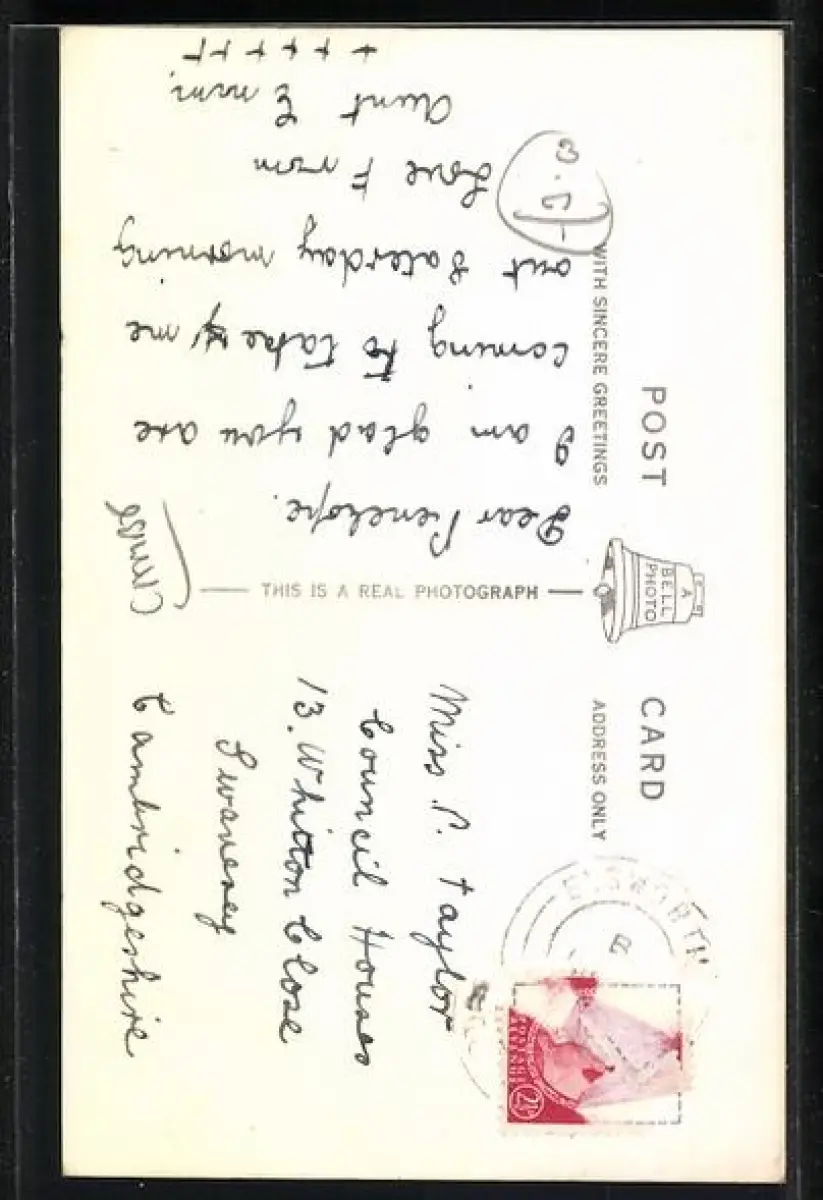 POST CARD
WITH SINCERE GREETINGS
ADDRESS ONLY
A
BELL
PHOTO
THIS IS A REAL PHOTOGRAPH
Dear Penelope.
I am glad you are
coming to take me
out Saterday morning
Love From
Aunt Emm.
+ + + + +
Miss P. Taylor
Council Houses
13. Whitton Close
Swavesey
Cambridgeshire
ELSWORTH
POSTAGE
REVENUE
2½